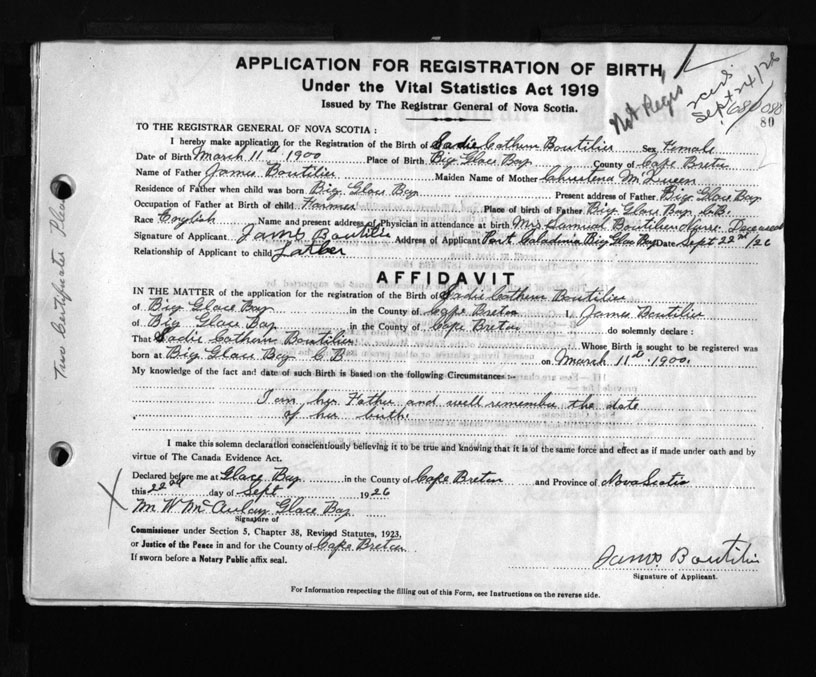 APPLICATION FOR REGISTRATION OF BIRTH,
Under the Vital Statistics Act 1919
Issued by The Registrar General of Nova Scotia.
Not Regis
Sept 24/26
80
TO THE REGISTRAR GENERAL OF NOVA SCOTIA :
I hereby make application for the Registration of the Birth of Sadie Cathern Boutilier Sex Female
Date of Birth March 11th 1900 Place of Birth Big Glace Bay County of Cape Breton
Name of Father James Boutilier Maiden Name of Mother Christena McQueen
Residence of Father when child was born Big Glace Bay Present address of Father Big Glace Bay
Occupation of Father at Birth of child Farmer Place of birth of Father Big Glace Bay C.B.
Race English Name and present address of Physician in attendance at birth Mrs Samuel Boutilier Nurse Deceased
Signature of Applicant James Boutilier Address of Applicant Port Caladonia Big Glace Bay Date Sept 22nd/26
Relationship of Applicant to child Father
AFFIDAVIT
IN THE MATTER of the application for the registration of the Birth of Sadie Cathern Boutilier
of Big Glace Bay in the County of Cape Breton I, James Boutilier
of Big Glace Bay in the County of Cape Breton do solemnly declare :
That Sadie Cathern Boutilier Whose Birth is sought to be registered was
born at Big Glace Bay C.B on March 11th 1900.
My knowledge of the fact and date of such Birth is based on the following Circumstances :-
I am her Father and well remember the date
of her birth.
I make this solemn declaration conscientiously believing it to be true and knowing that it is of the same force and effect as if made under oath and by
virtue of The Canada Evidence Act.
Declared before me at Glace Bay in the County of Cape Breton and Province of Nova Scotia
this 22nd day of Sept 1926
M W McAulay Glace Bay
Signature of
Commissioner under Section 5, Chapter 38, Revised Statutes, 1923,
or Justice of the Peace in and for the County of Cape Breton
If sworn before a Notary Public affix seal.
James Boutilier
Signature of Applicant.
For Information respecting the filling out of this Form, see Instructions on the reverse side.
Two Certificates Please